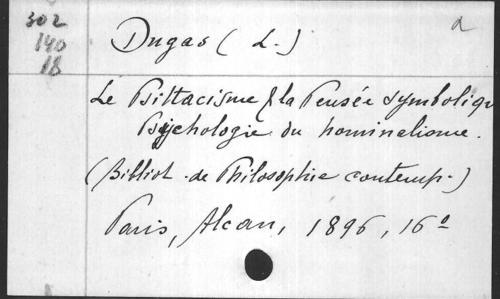 302
140
18
Dugas ( L.)
a
Le Psittacisme & la Pensée symboliqu
Psychologie du nominalisme.
(Bibliot. de Philosophie contemp.)
Paris, Alcan, 1896, 16°